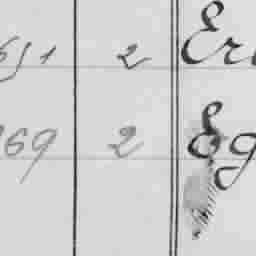 651 2 Er
269 2 Eg